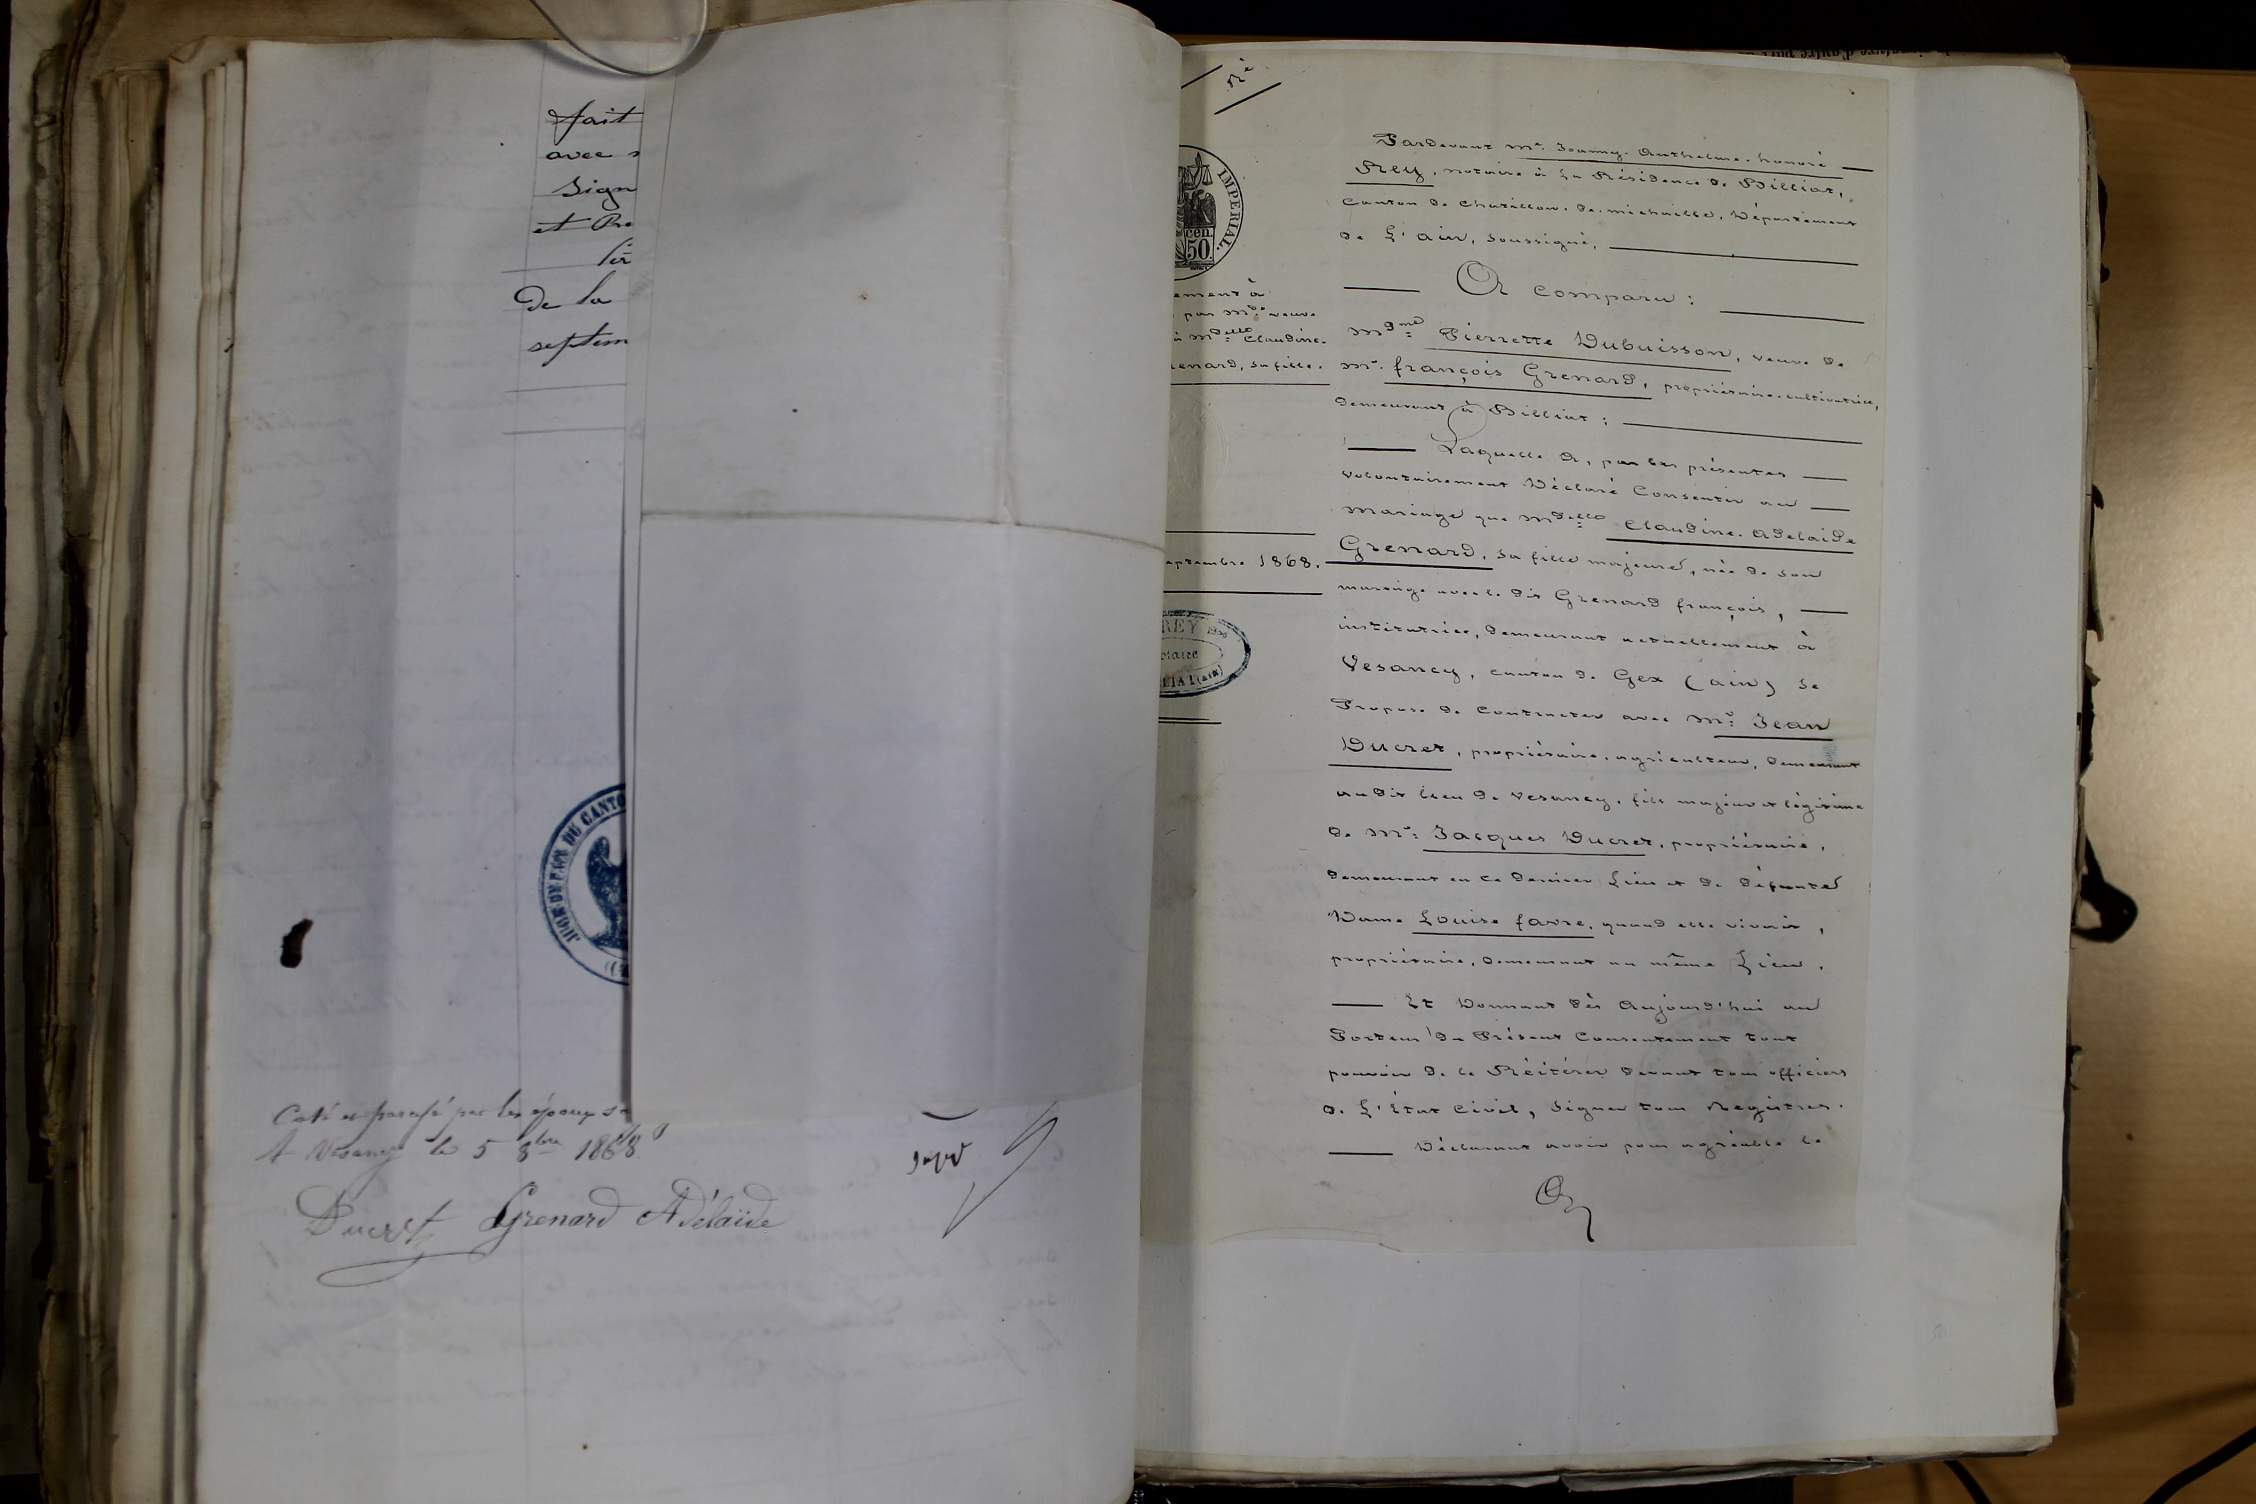 fait
avec
Sign
et Re
de la
septem
JUGE DE PAIX DU CANTO
Coté et paraphé par les époux
A Vesancy le 5 8bre 1868
Ducret Grenard Adélaïde
Né
IMPERIAL.
cen.
50.
ement à
par Mde veuve
à Mdelle Claudine.
enard, sa fille.
eptembre 1868.
REY
otaire
LIAT (ain)
Pardevant Mr. Joanny. Anthelme. honoré
Rey, notaire à la Résidence de Billiat,
Canton de Chatillon. de. michaille, Département
de L'ain, soussigné,
A Comparu :
Mdme Pierrette Dubuisson, veuve de
Mr. françois Grenard, propriétaire.cultivatrice,
demeurant à Billiat ;
Laquelle a, par les présentes
volontairement Déclaré Consentir au
mariage que Mdelle Claudine. Adelaide
Grenard, sa fille majeure, née de son
mariage avec le dit Grenard françois,
institutrice, demeurant actuellement à
Vesancy, canton de Gex (ain) se
Propose de Contracter avec Mr: Jean
Ducret, propriétaire. agriculteur, demeurant
au dit lieu de Vesancy, fils majeur et légitime
de Mr: Jacques Ducret, propriétaire,
demeurant en ce dernier Lieu et de défunte
Dame Louise favre, quand elle vivait,
propriétaire, demeurant au même Lieu.
Et Donnant dès Aujourd'hui au
Porteur du Présent Consentement tout
pouvoir de le Réitérer devant tous officiers
de L'État Civil, Signer tous Registres.
Déclarant avoir pour agréable le